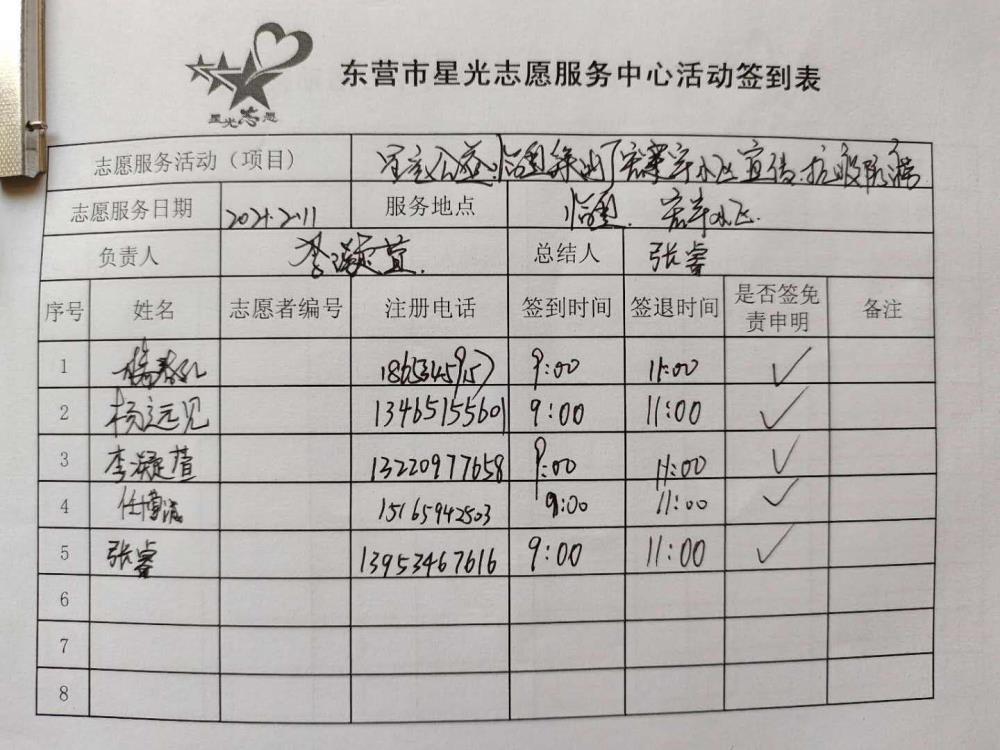 星光志愿
东营市星光志愿服务中心活动签到表
志愿服务活动（项目） 宣传
志愿服务日期 2021.2.11 服务地点
负责人 李凝萱. 总结人 张睿
序号 姓名 志愿者编号 注册电话 签到时间 签退时间 是否签免责申明 备注
1 9:00 11:00 ✓
2 杨远见 13465155601 9:00 11:00 ✓
3 李凝萱 13220977658 9:00 11:00 ✓
4 任博 15165942503 9:00 11:00 ✓
5 张睿 13953467616 9:00 11:00 ✓
6
7
8